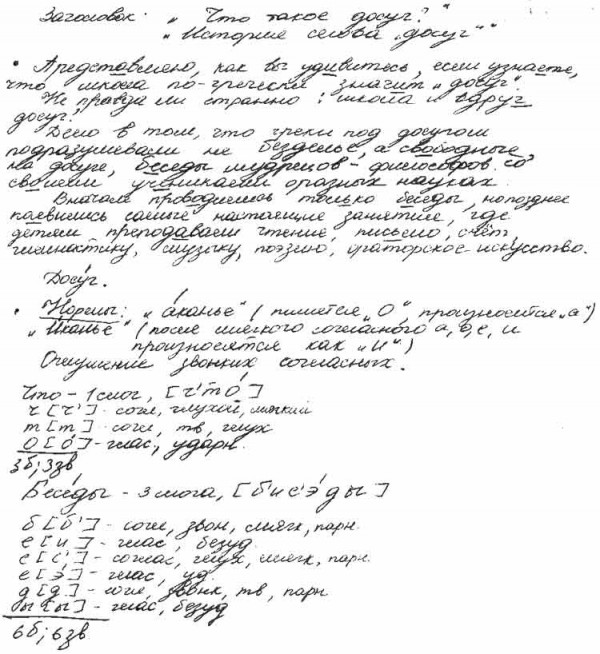 Заголовок: „Что такое досуг?"
„История слова „досуг""
• Представляю, как вы удивитесь, если узнаете,
что школа по-гречески значит „досуг".
Не правда ли странно: школа и вдруг
досуг!
Дело в том, что греки под досугом
подразумевали не безделье, а свободные
на досуге, беседы мудрецов-философов со
своими учениками о разных науках.
Вначале проводились только беседы, но позднее
появились самые настоящие занятия, где
детям преподавали чтение, письмо, счёт,
гимнастику, музыку, поэзию, ораторское искусство.
Досуг.
• Нормы: „аканье" (пишется „О", произносится „а")
„Иканье" (после мягкого согласного а, о, е, и
произносятся как „и")
Оглушение звонких согласных.
Что - 1 слог, [ч'тО́]
ч [ч'] - согл, глухой, мягкий
т [т] - согл, тв, глух
О [О́] - глас, ударн.
3б; 3зв
Беседы - 3 слога, [б'ис'э́ды]
б [б'] - согл, звон, мягк, парн.
е [и] - глас, безуд.
с [с'] - соглас, глух, мягк, парн.
е [э] - глас, уд.
д [д] - согл, звонк, тв, парн
ы [ы] - глас, безуд
6б; 6зв